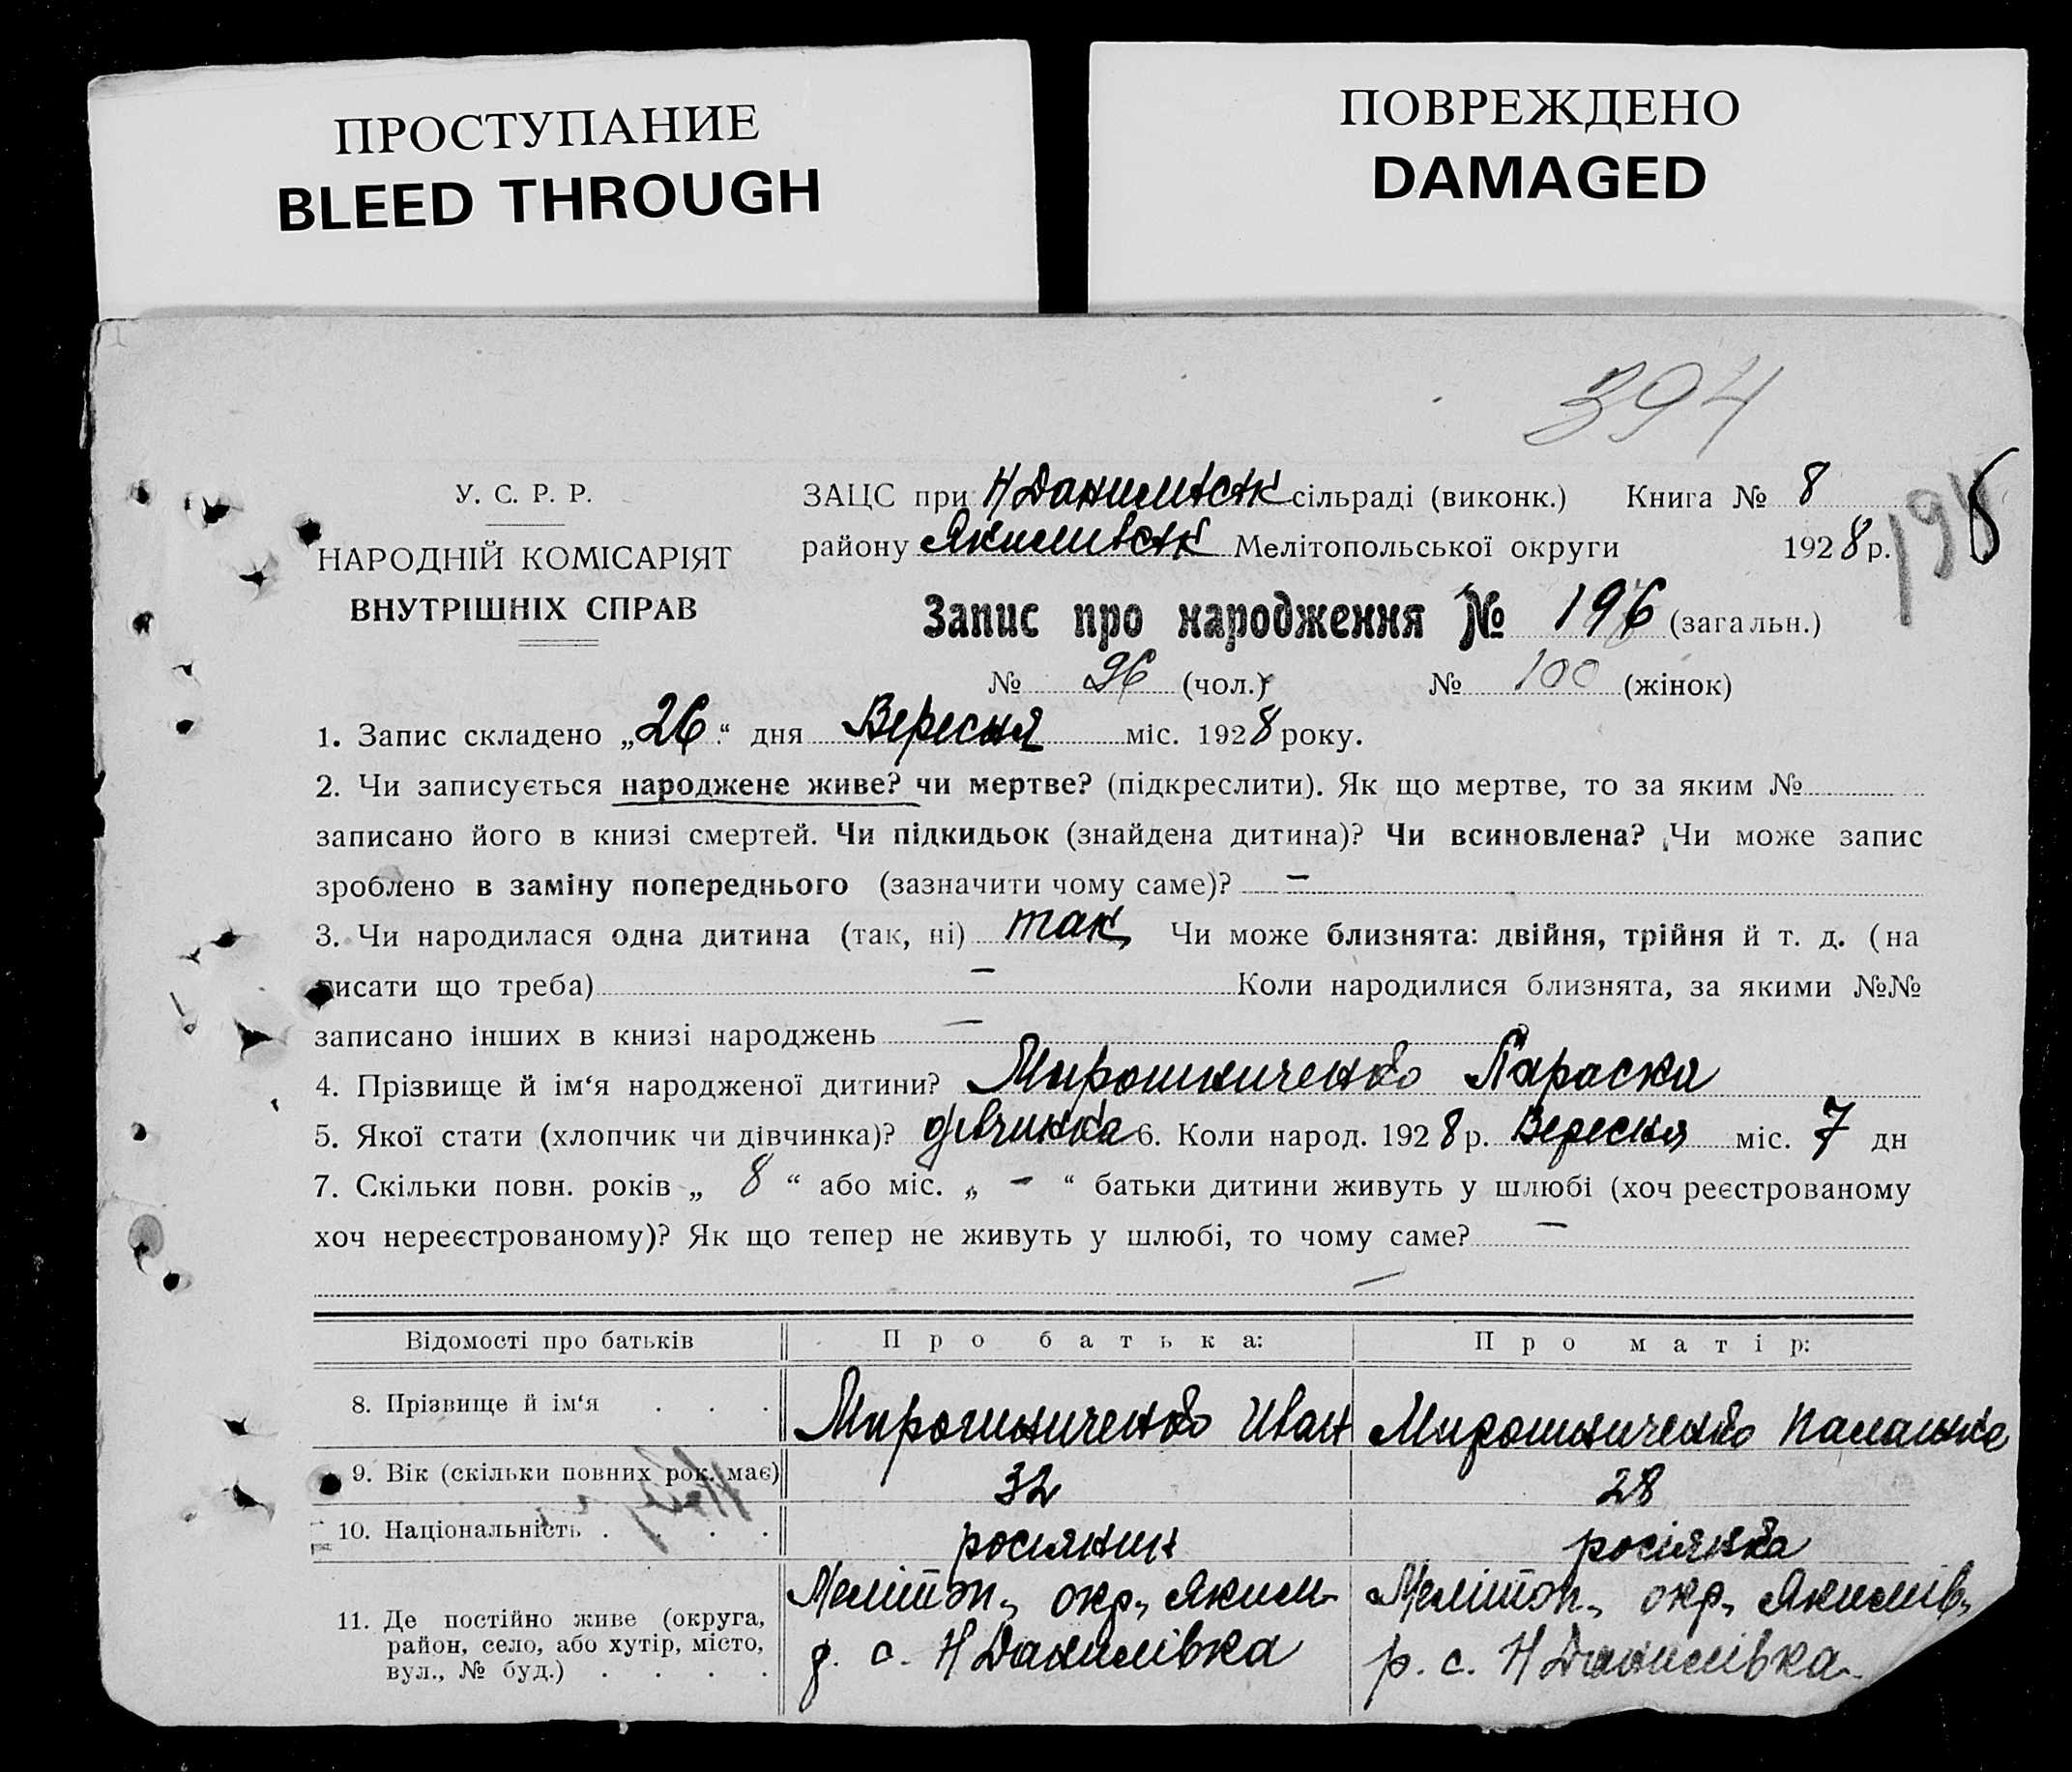 ПРОСТУПАНИЕ
BLEED THROUGH
ПОВРЕЖДЕНО
DAMAGED
394
У. С. Р. Р.
НАРОДНІЙ КОМІСАРІЯТ
ВНУТРІШНІХ СПРАВ
ЗАЦС при Н Данилівськ сільраді (виконк.) Книга № 8
району Якимівськ Мелітопольської округи 1928 р.
198
Запис про народження № 196 (загальн.)
№ 96 (чол.) № 100 (жінок)
1. Запис складено „26“ дня Вересня міс. 1928 року.
2. Чи записується народжене живе? чи мертве? (підкреслити). Як що мертве, то за яким №
записано його в книзі смертей. Чи підкидьок (знайдена дитина)? Чи всиновлена? Чи може запис
зроблено в заміну попереднього (зазначити чому саме)? –
3. Чи народилася одна дитина (так, ні) так, Чи може близнята: двійня, трійня й т. д. (на
писати що треба) – Коли народилися близнята, за якими №№
записано інших в книзі народжень –
4. Прізвище й ім‘я народженої дитини? Мирошниченко Параска
5. Якої стати (хлопчик чи дівчинка)? дівчинка 6. Коли народ. 1928 р. Вересня міс. 7 дн
7. Скільки повн. років „ 8 “ або міс. „ – “ батьки дитини живуть у шлюбі (хоч реєстрованому
хоч нереєстрованому)? Як що тепер не живуть у шлюбі, то чому саме? –
–
Відомості про батьків Про батька: Про матір:
8. Прізвище й ім‘я . . . Мирошниченко Иван Мирошниченко
9. Вік (скільки повних рок. має) 32 28
10. Національність . . . . росиянин росіянка
11. Де постійно живе (округа,
район, село, або хутір, місто,
вул., № буд.) . . . .
Меліт оп., окр., Яким-
р. с. Н Данилівка
Мелітоп., окр., Якимів,
р. с. Н Данилівка